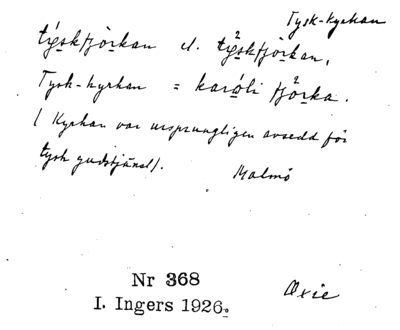 Tysk-kyrkan
týskfjòrkan el. týskfjòrkan,
Tysk-kyrkan = karóli fjòrka.
(Kyrkan var ursprungligen avsedd för
tysk gudstjänst).
Malmö
Nr 368
Oxie
I. Ingers 1926.